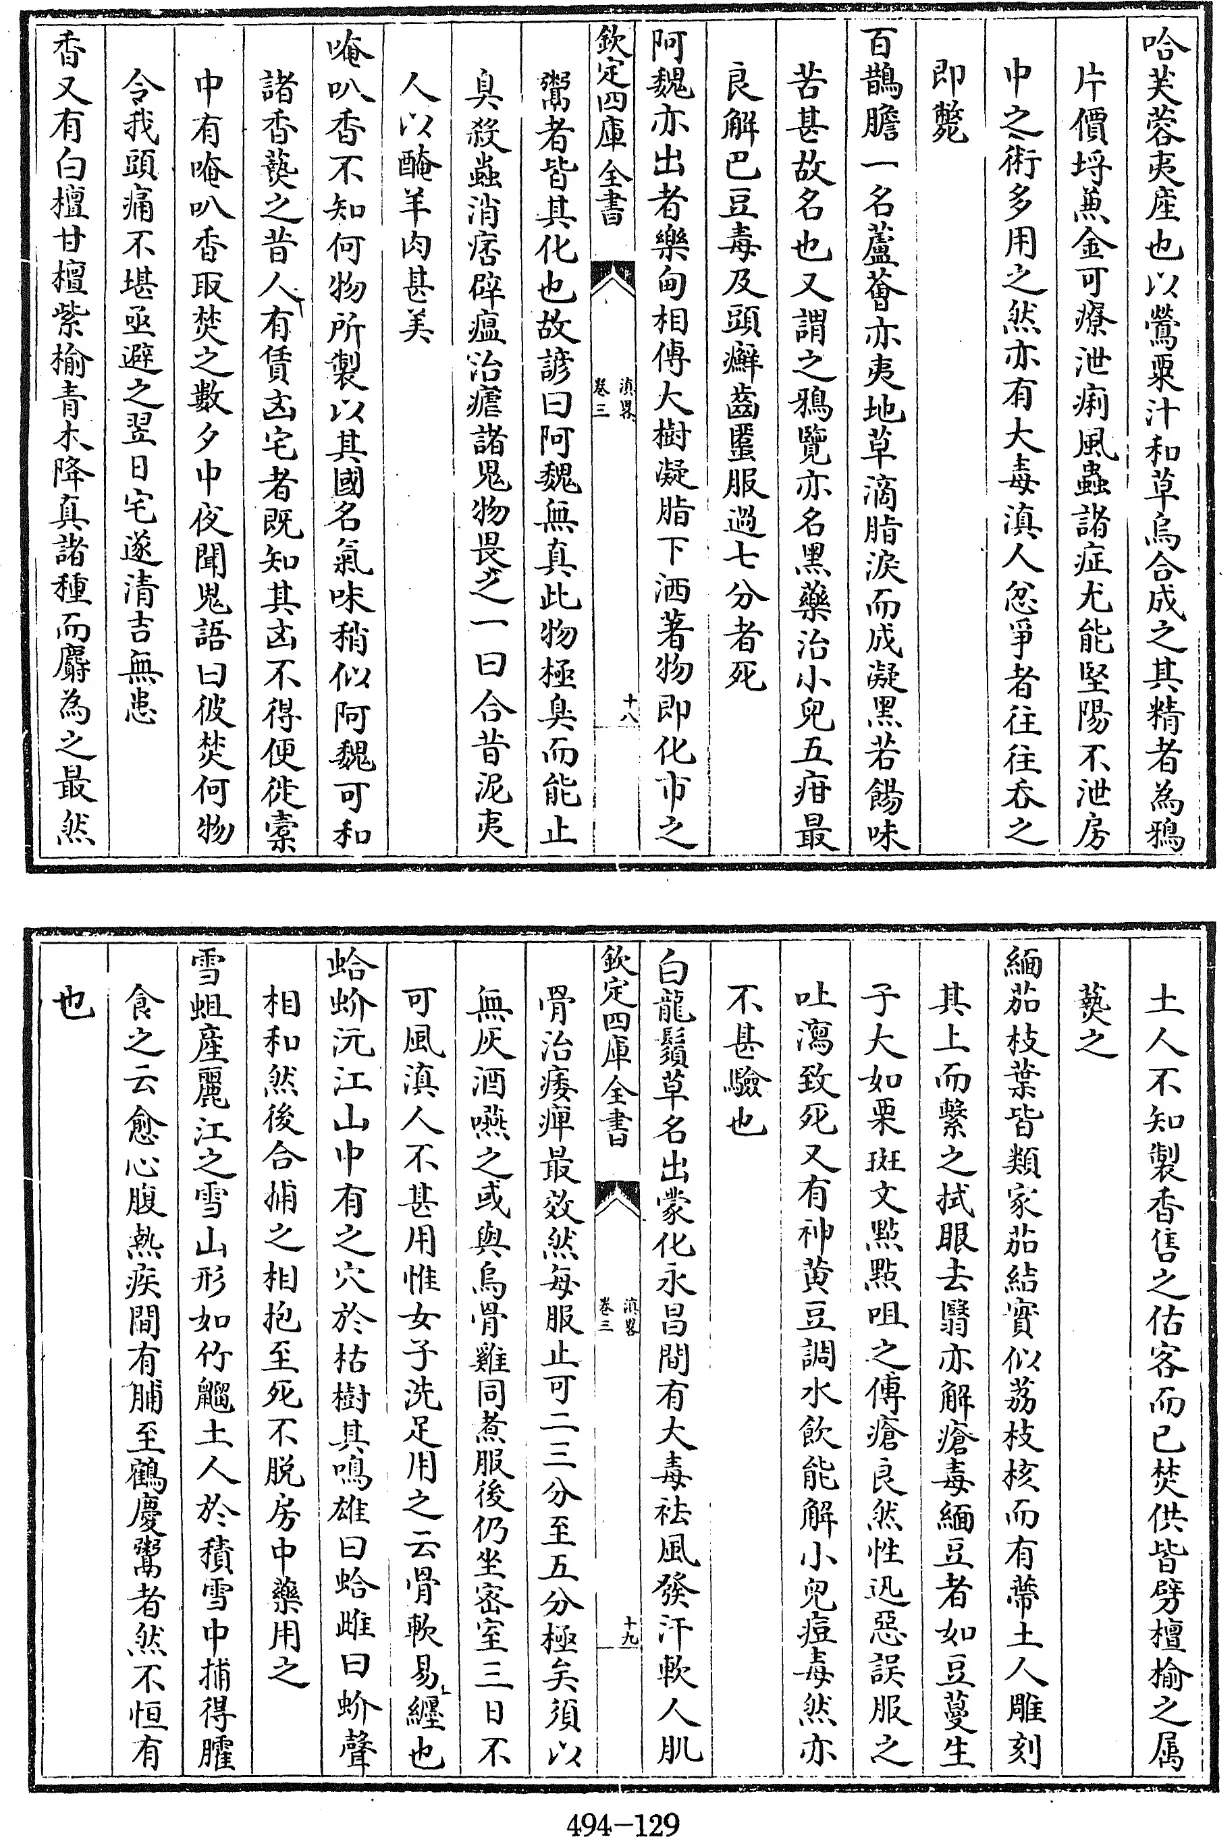 哈芙蓉夷産也以鶯粟汁和草烏合成之其精者為鴉
片價埒兼金可療泄痢風蟲諸症尤能堅陽不泄房
中之術多用之然亦有大毒滇人忿爭者往往吞之
即斃
百鵲膽一名蘆薈亦夷地草滴脂淚而成凝黑若餳味
苦甚故名也又謂之鴉覽亦名黑藥治小兒五疳最
良解巴豆毒及頭癬齒䘌服過七分者死
阿魏亦出者樂甸相傳大樹凝脂下洒著物即化市之
欽定四庫全書
滇畧
卷三
十八
鬻者皆其化也故諺曰阿魏無真此物極臭而能止
臭殺蟲消痞辟瘟治瘧諸鬼物畏之一曰合昔泥夷
人以醃羊肉甚美
唵叭香不知何物所製以其國名氣味稍似阿魏可和
諸香爇之昔人有賃凶宅者既知其凶不得便徙橐
中有唵叭香取焚之數夕中夜聞鬼語曰彼焚何物
令我頭痛不堪亟避之翌日宅遂清吉無患
香又有白檀甘檀紫榆青木降真諸種而麝為之最然
土人不知製香售之估客而已焚供皆劈檀榆之屬
爇之
緬茄枝葉皆類家茄結實似荔枝核而有蒂土人雕刻
其上而繫之拭眼去翳亦解瘡毒緬豆者如豆蔓生
子大如栗斑文點點咀之傅瘡良然性迅惡誤服之
吐瀉致死又有神黄豆調水飲能解小兒痘毒然亦
不甚驗也
白龍鬚草名出蒙化永昌間有大毒祛風發汗軟人肌
欽定四庫全書
滇畧
卷三
十九
骨治痿痺最效然每服止可二三分至五分極矣須以
無灰酒嚥之或與烏骨雞同煮服後仍坐密室三日不
可風滇人不甚用惟女子洗足用之云骨軟易纒也
蛤蚧沅江山中有之穴於枯樹其鳴雄曰蛤雌曰蚧聲
相和然後合捕之相抱至死不脱房中藥用之
雪蛆産麗江之雪山形如竹䶉土人於積雪中捕得臛
食之云愈心腹熱疾間有脯至鶴慶鬻者然不恒有
也
494-129